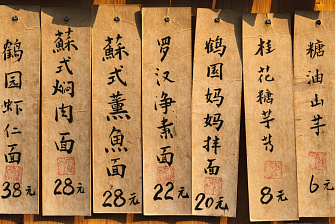 鹤园虾仁面
38元
蘇式焖肉面
28元
蘇式薰魚面
28元
罗汉净素面
22元
鹤园妈妈拌面
20元
桂花糖芋艿
8元
糖油山芋
6元